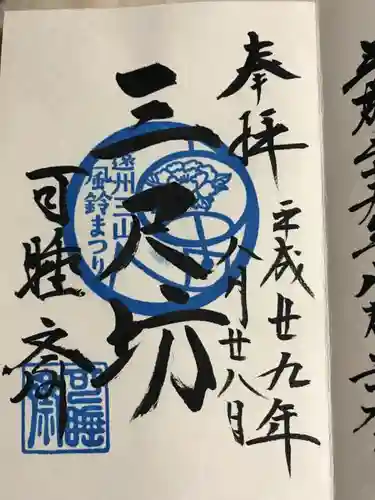 奉拝
平成廿九年
八月廿八日
三尺坊
可睡斎
遠州三山
風鈴まつり
可睡斎